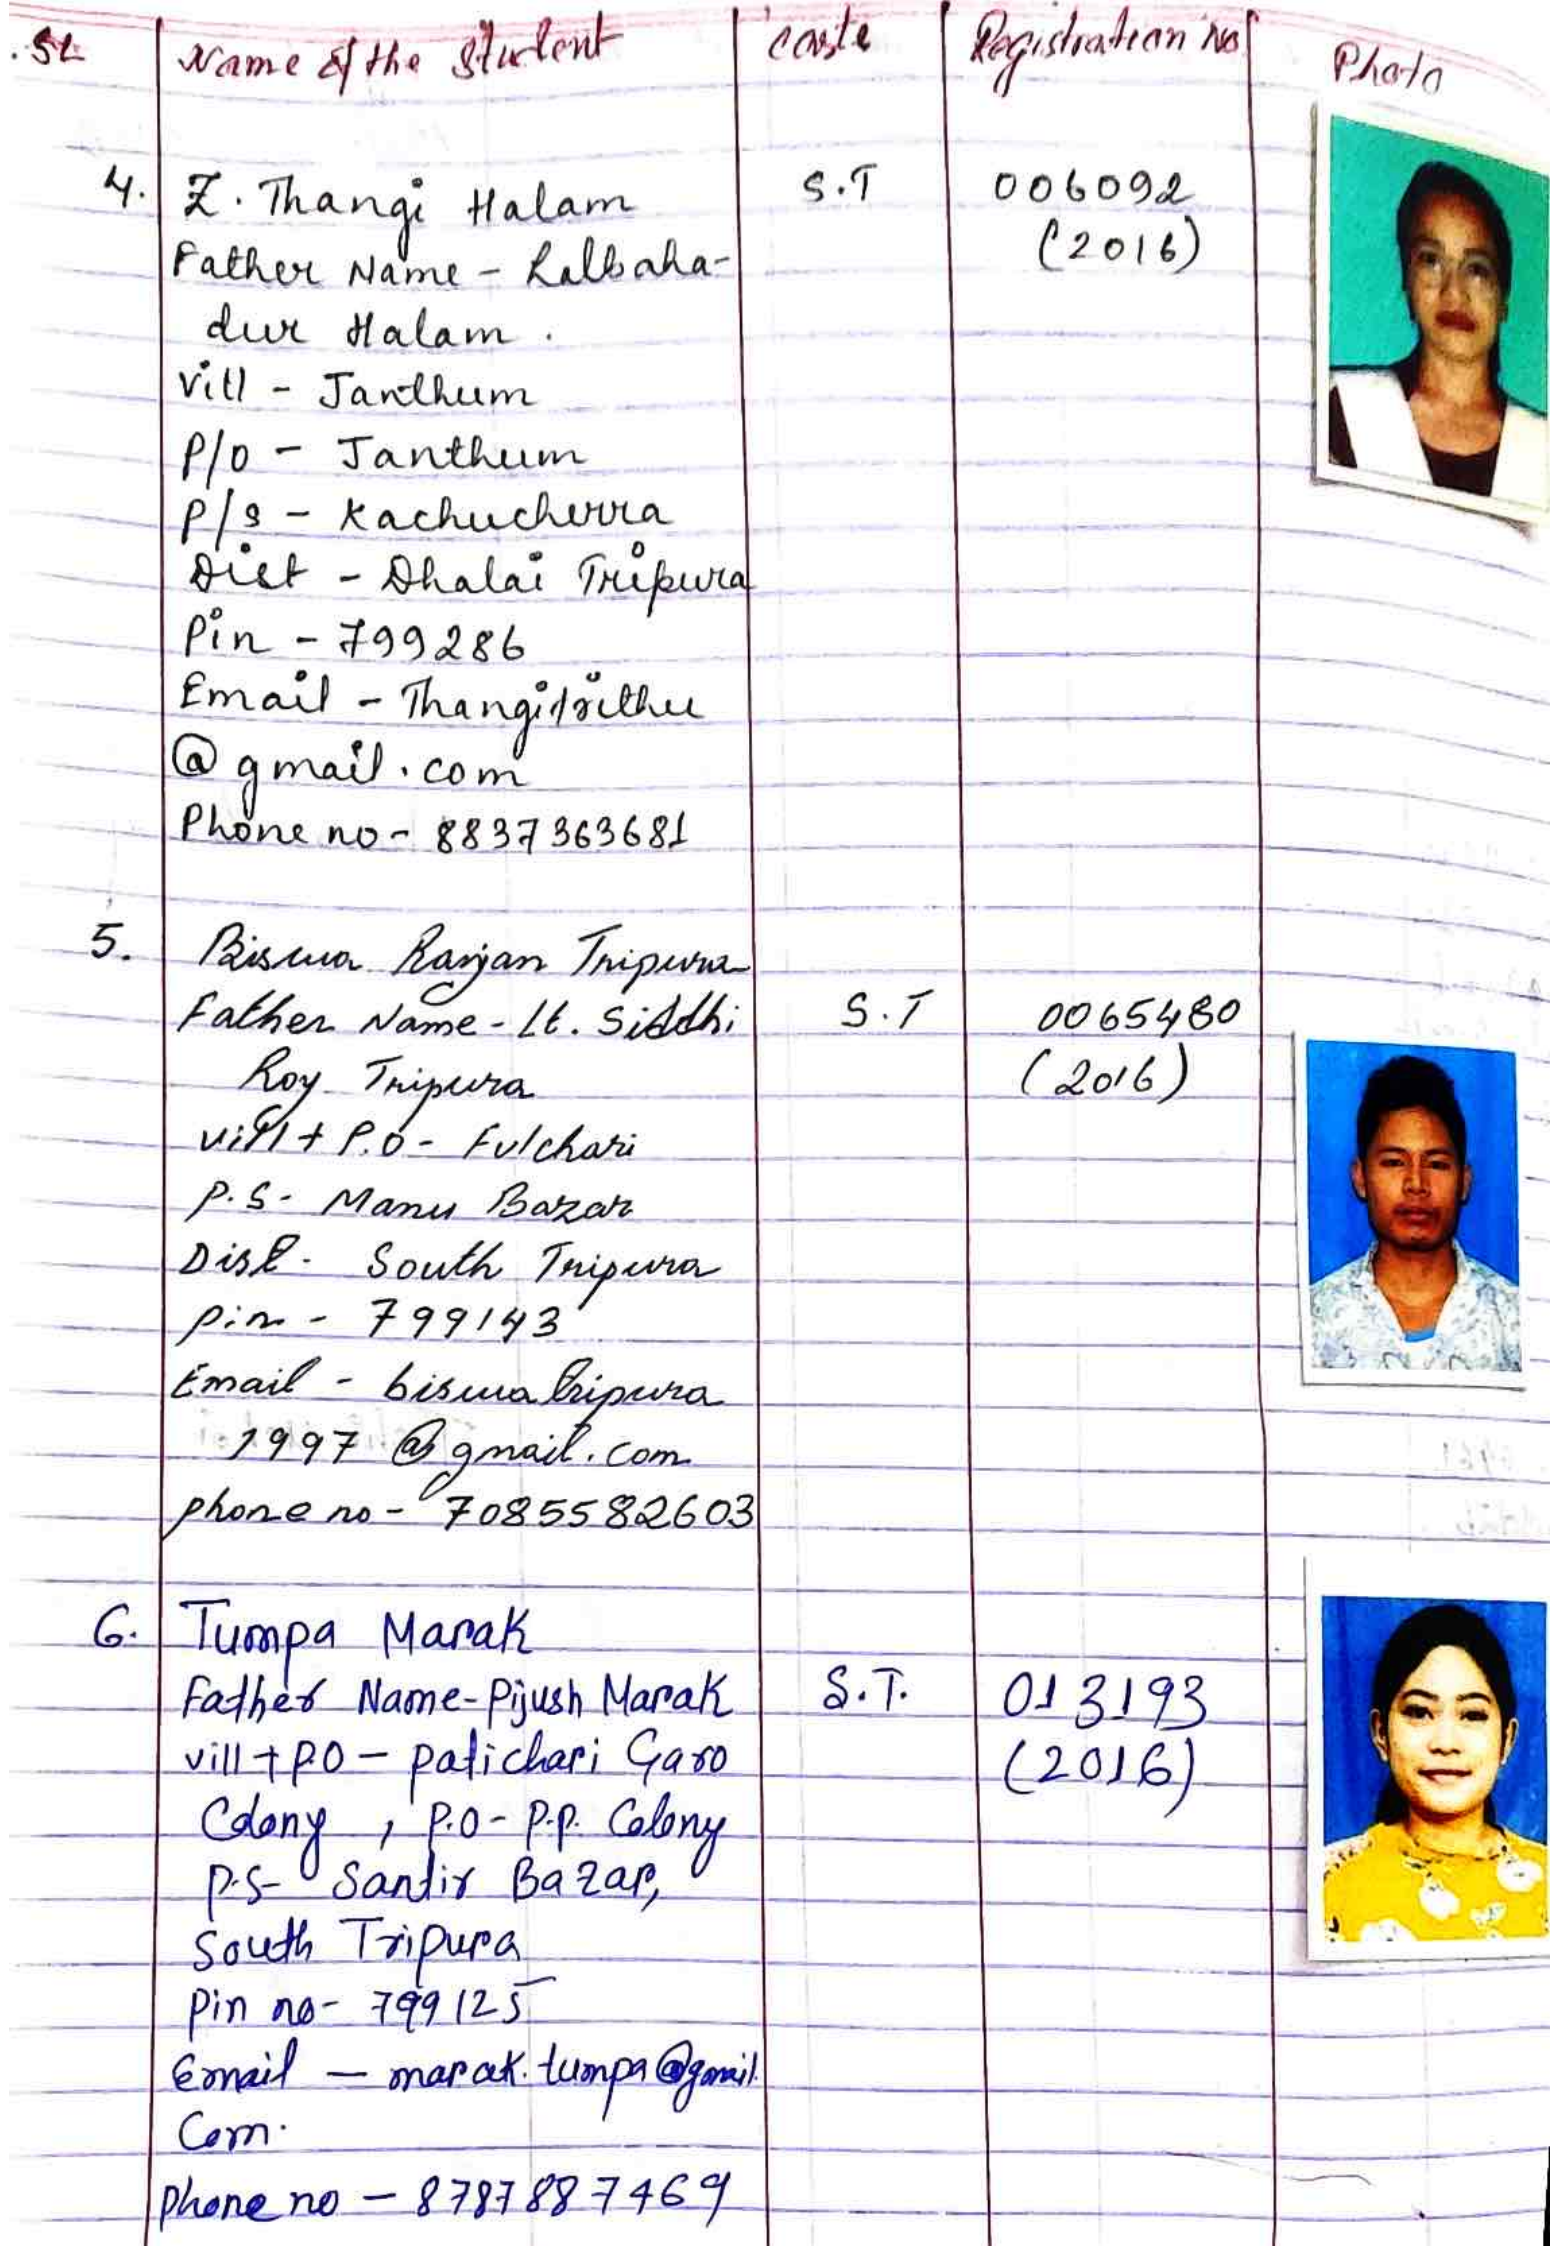 SL Name of the Student Caste Registration No Photo
4. Z. Thangi Halam S.T 006092
Father Name - Lalbaha- (2016)
dur Halam.
Vill - Janthum
P/O - Janthum
P/S - Kachucherra
Dist - Dhalai Tripura
Pin - 799286
Email -
@gmail.com
Phone no - 8837363681
5. Biswa Ranjan Tripura
Father Name - Lt. Siddhi S.T 0065480
Roy Tripura (2016)
Vill + P.O - Fulchari
P.S - Manu Bazar
Dist - South Tripura
Pin - 799143
Email - biswatripura
1997@gmail.com
phone no - 7085582603
6. Tumpa Marak
Father Name - Pijush Marak S.T. 013193
vill + P.O - Patichari Garo (2016)
Colony, P.O - P.P. Colony
P.S - Santir Bazar,
South Tripura
Pin no - 799125
Email - marak.tumpa@gmail.
Com.
phone no - 8787887469